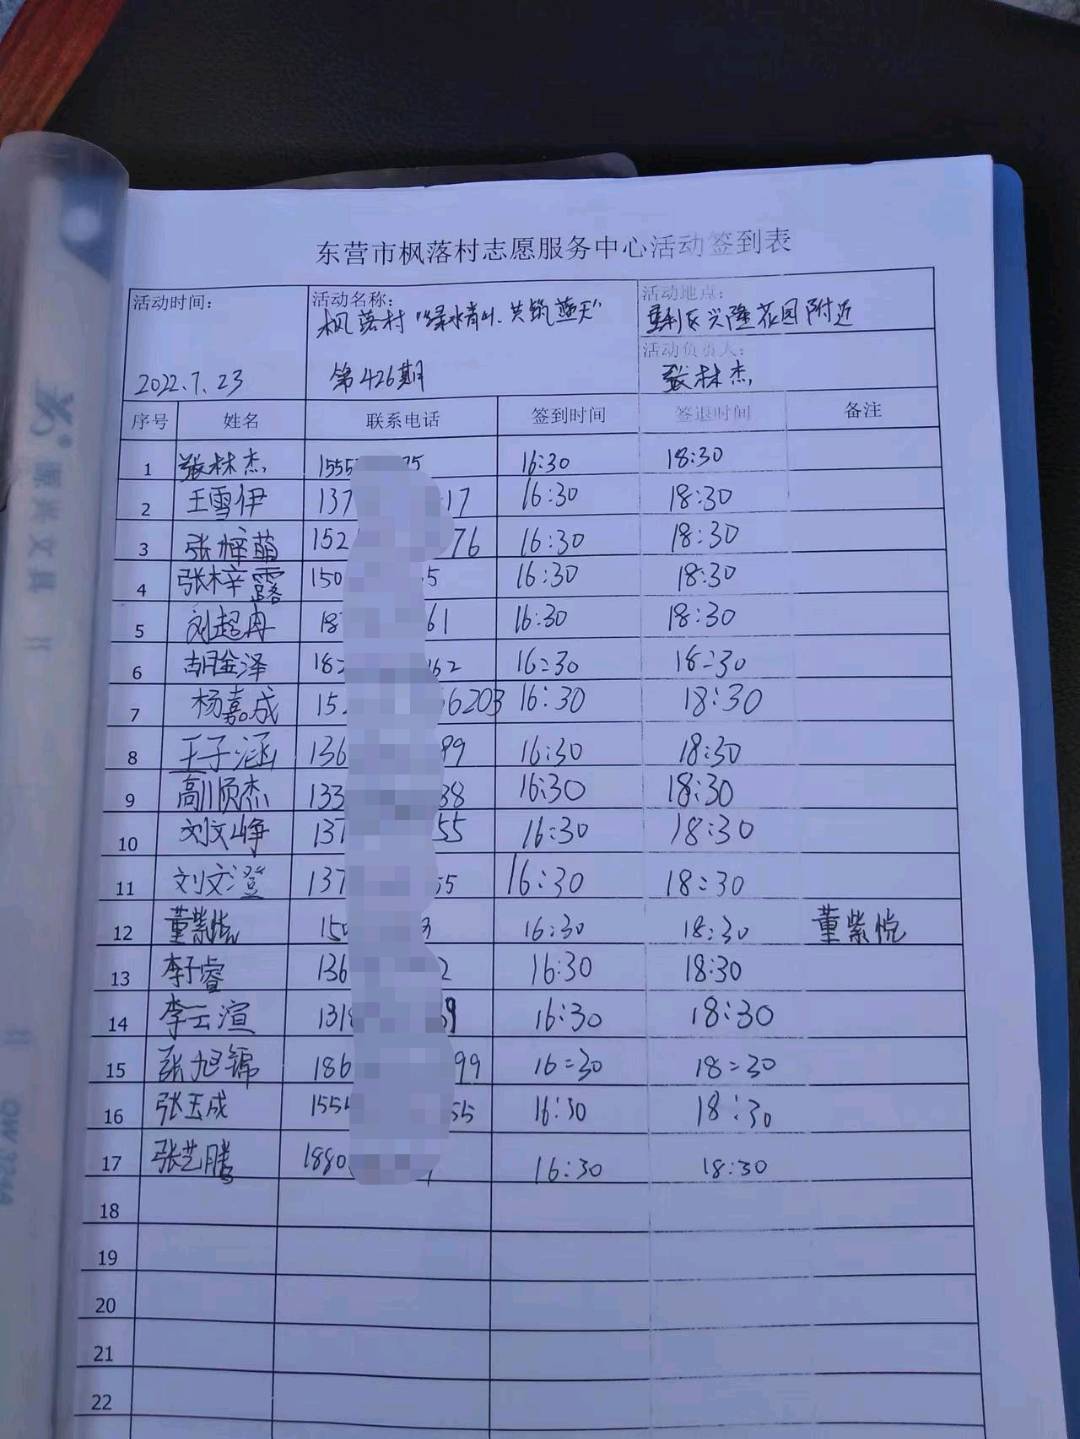 东营市枫落村志愿服务中心活动签到表
活动时间: 活动名称: 活动地点:
枫落村"绿水青山、共筑蓝天" 垦利区兴隆花园附近
活动负责人:
2022.7.23 第426期 张林杰
序号 姓名 联系电话 签到时间 签退时间 备注
1 张林杰 1555 75 16:30 18:30
2 王雪伊 137 17 16:30 18:30
3 张梓萌 152 76 16:30 18:30
4 张梓露 150 5 16:30 18:30
5 刘超冉 18 61 16:30 18:30
6 胡金泽 182 62 16:30 18:30
7 杨嘉成 15 6203 16:30 18:30
8 王子涵 136 99 16:30 18:30
9 高顺杰 133 38 16:30 18:30
10 刘文峥 137 55 16:30 18:30
11 刘文澄 137 55 16:30 18:30
12 董紫悦 150 3 16:30 18:30 董紫悦
13 李子睿 136 2 16:30 18:30
14 李云渲 1318 9 16:30 18:30
15 张旭锦 186 99 16:30 18:30
16 张玉成 1555 55 16:30 18:30
17 张艺腾 1880 16:30 18:30
18
19
20
21
22